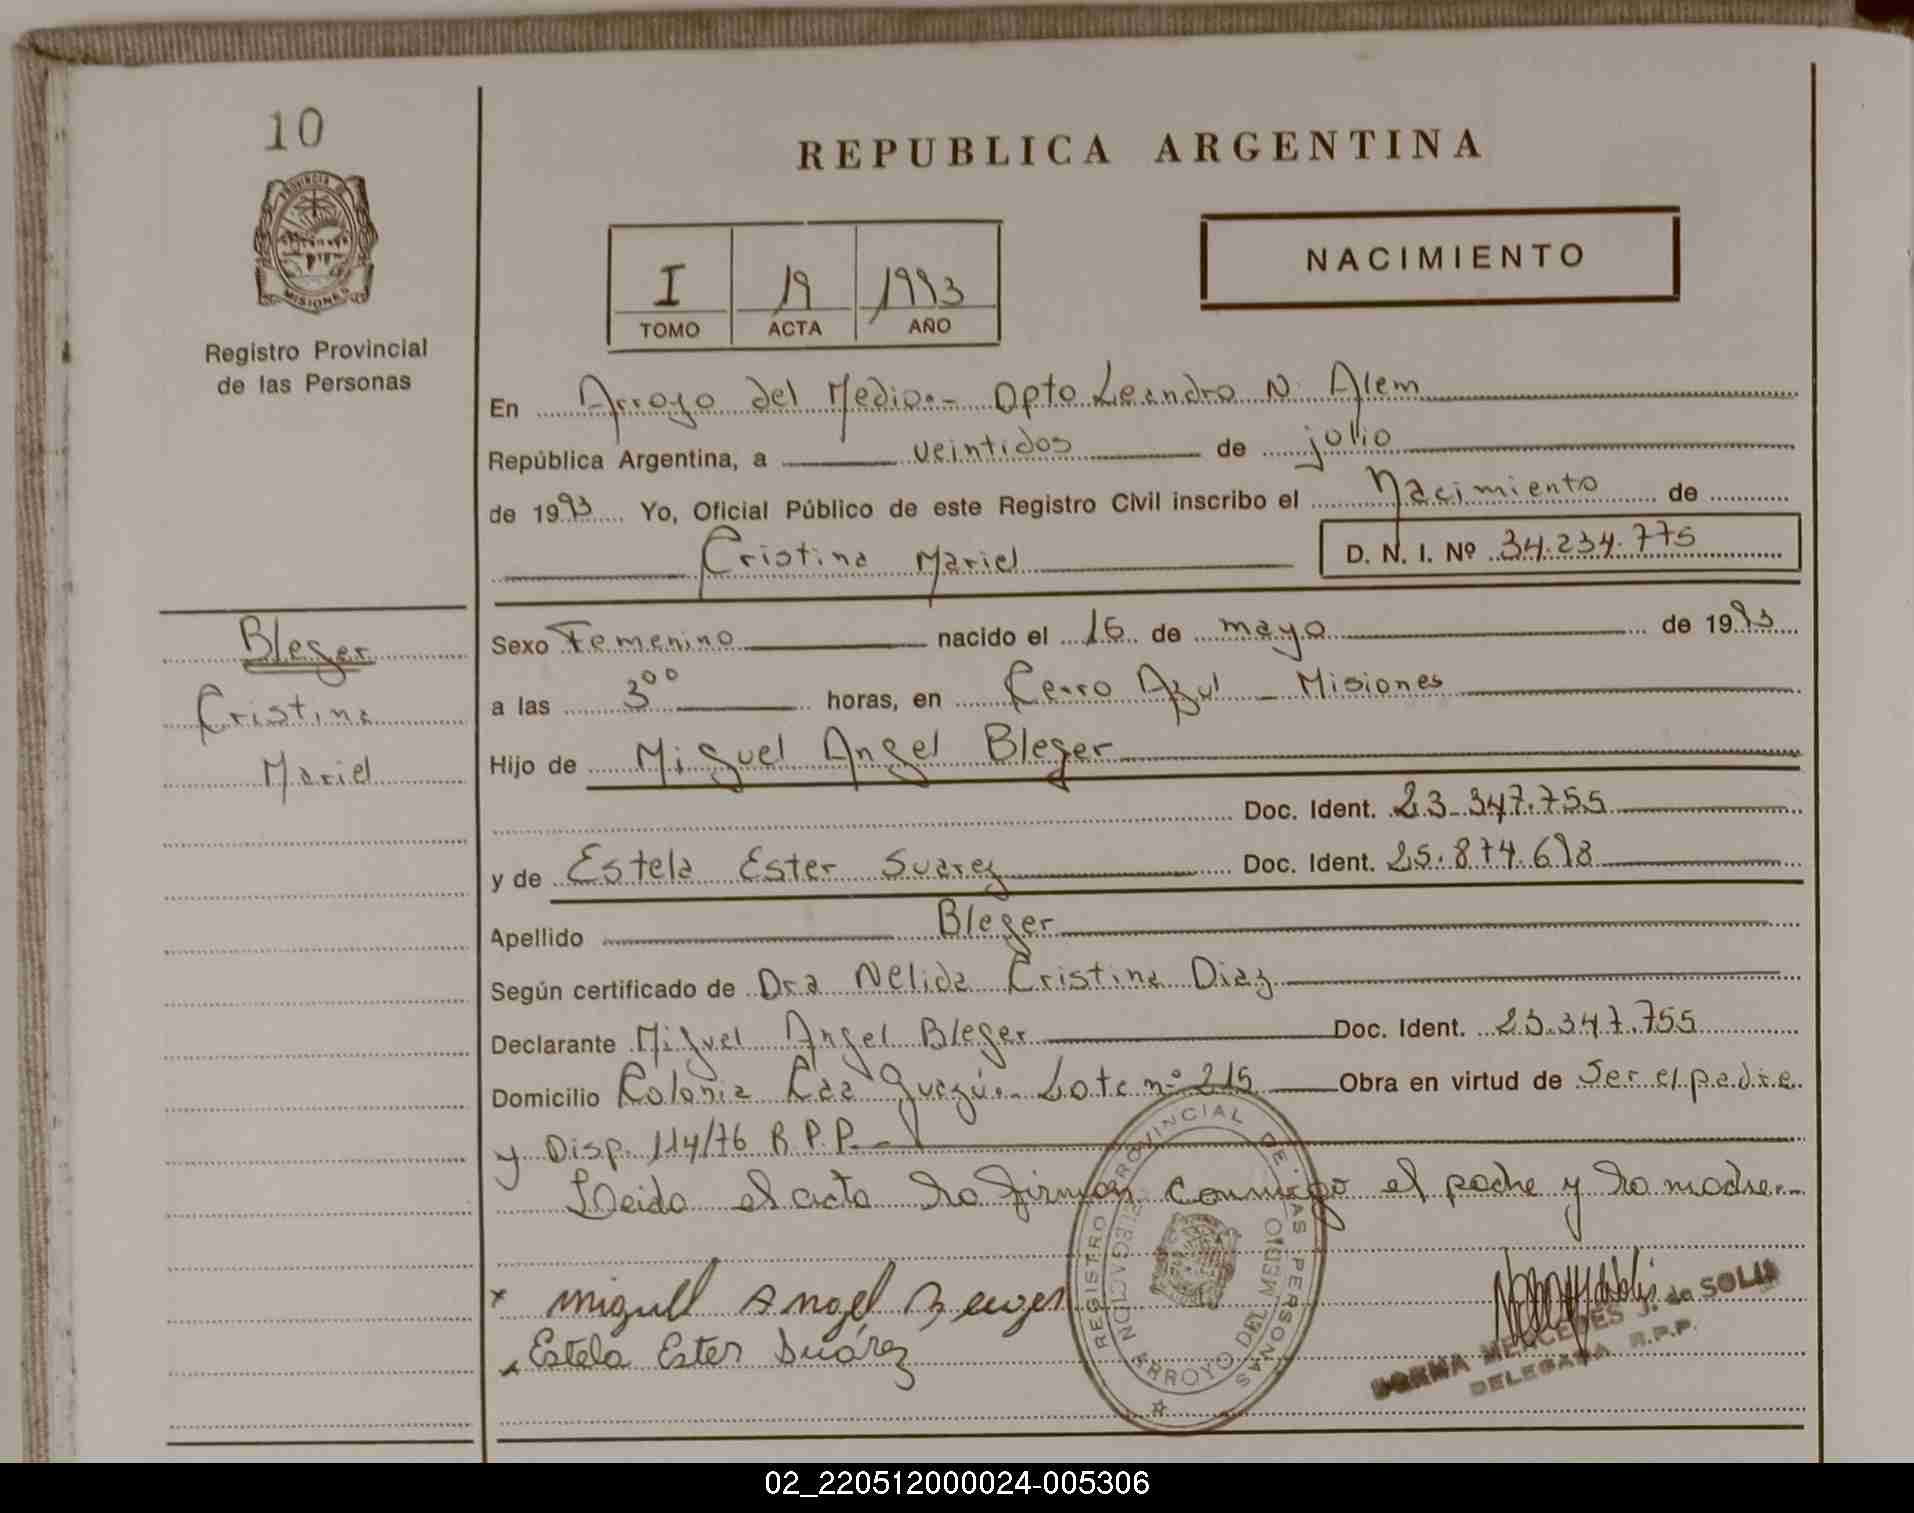 10
PROVINCIA DE
MISIONES
Registro Provincial
de las Personas
REPUBLICA ARGENTINA
I 19 1993
TOMO ACTA AÑO
NACIMIENTO
En Arroyo del Medio.- Dpto Leandro N. Alem
República Argentina, a veintidos de julio
de 1993 Yo, Oficial Público de este Registro Civil inscribo el Nacimiento de
Cristina Mariel D. N. I. Nº 34.234.775
Bleger
Cristina
Mariel
Sexo Femenino nacido el 16 de mayo de 1993
a las 3⁰⁰ horas, en Cerro Azul - Misiones
Hijo de Miguel Angel Bleger
Doc. Ident. 23.347.755
y de Estela Ester Suarez Doc. Ident. 25.874.698
Apellido Bleger
Según certificado de Dra Nelida Cristina Diaz
Declarante Miguel Angel Bleger Doc. Ident. 23.347.755
Domicilio Colonia Caa Guazú.- Lote nº 215 Obra en virtud de Ser el padre
y Disp. 114/76 R.P.P.-
Leida el acta la firman conmigo el padre y la madre.-
x Miguel Angel
x Estela Ester Suárez
REGISTRO PROVINCIAL DE LAS PERSONAS
DELEGACION ARROYO DEL MEDIO
MERCEDES J. de SOLIS
DELEGADA R.P.P.
02_220512000024-005306